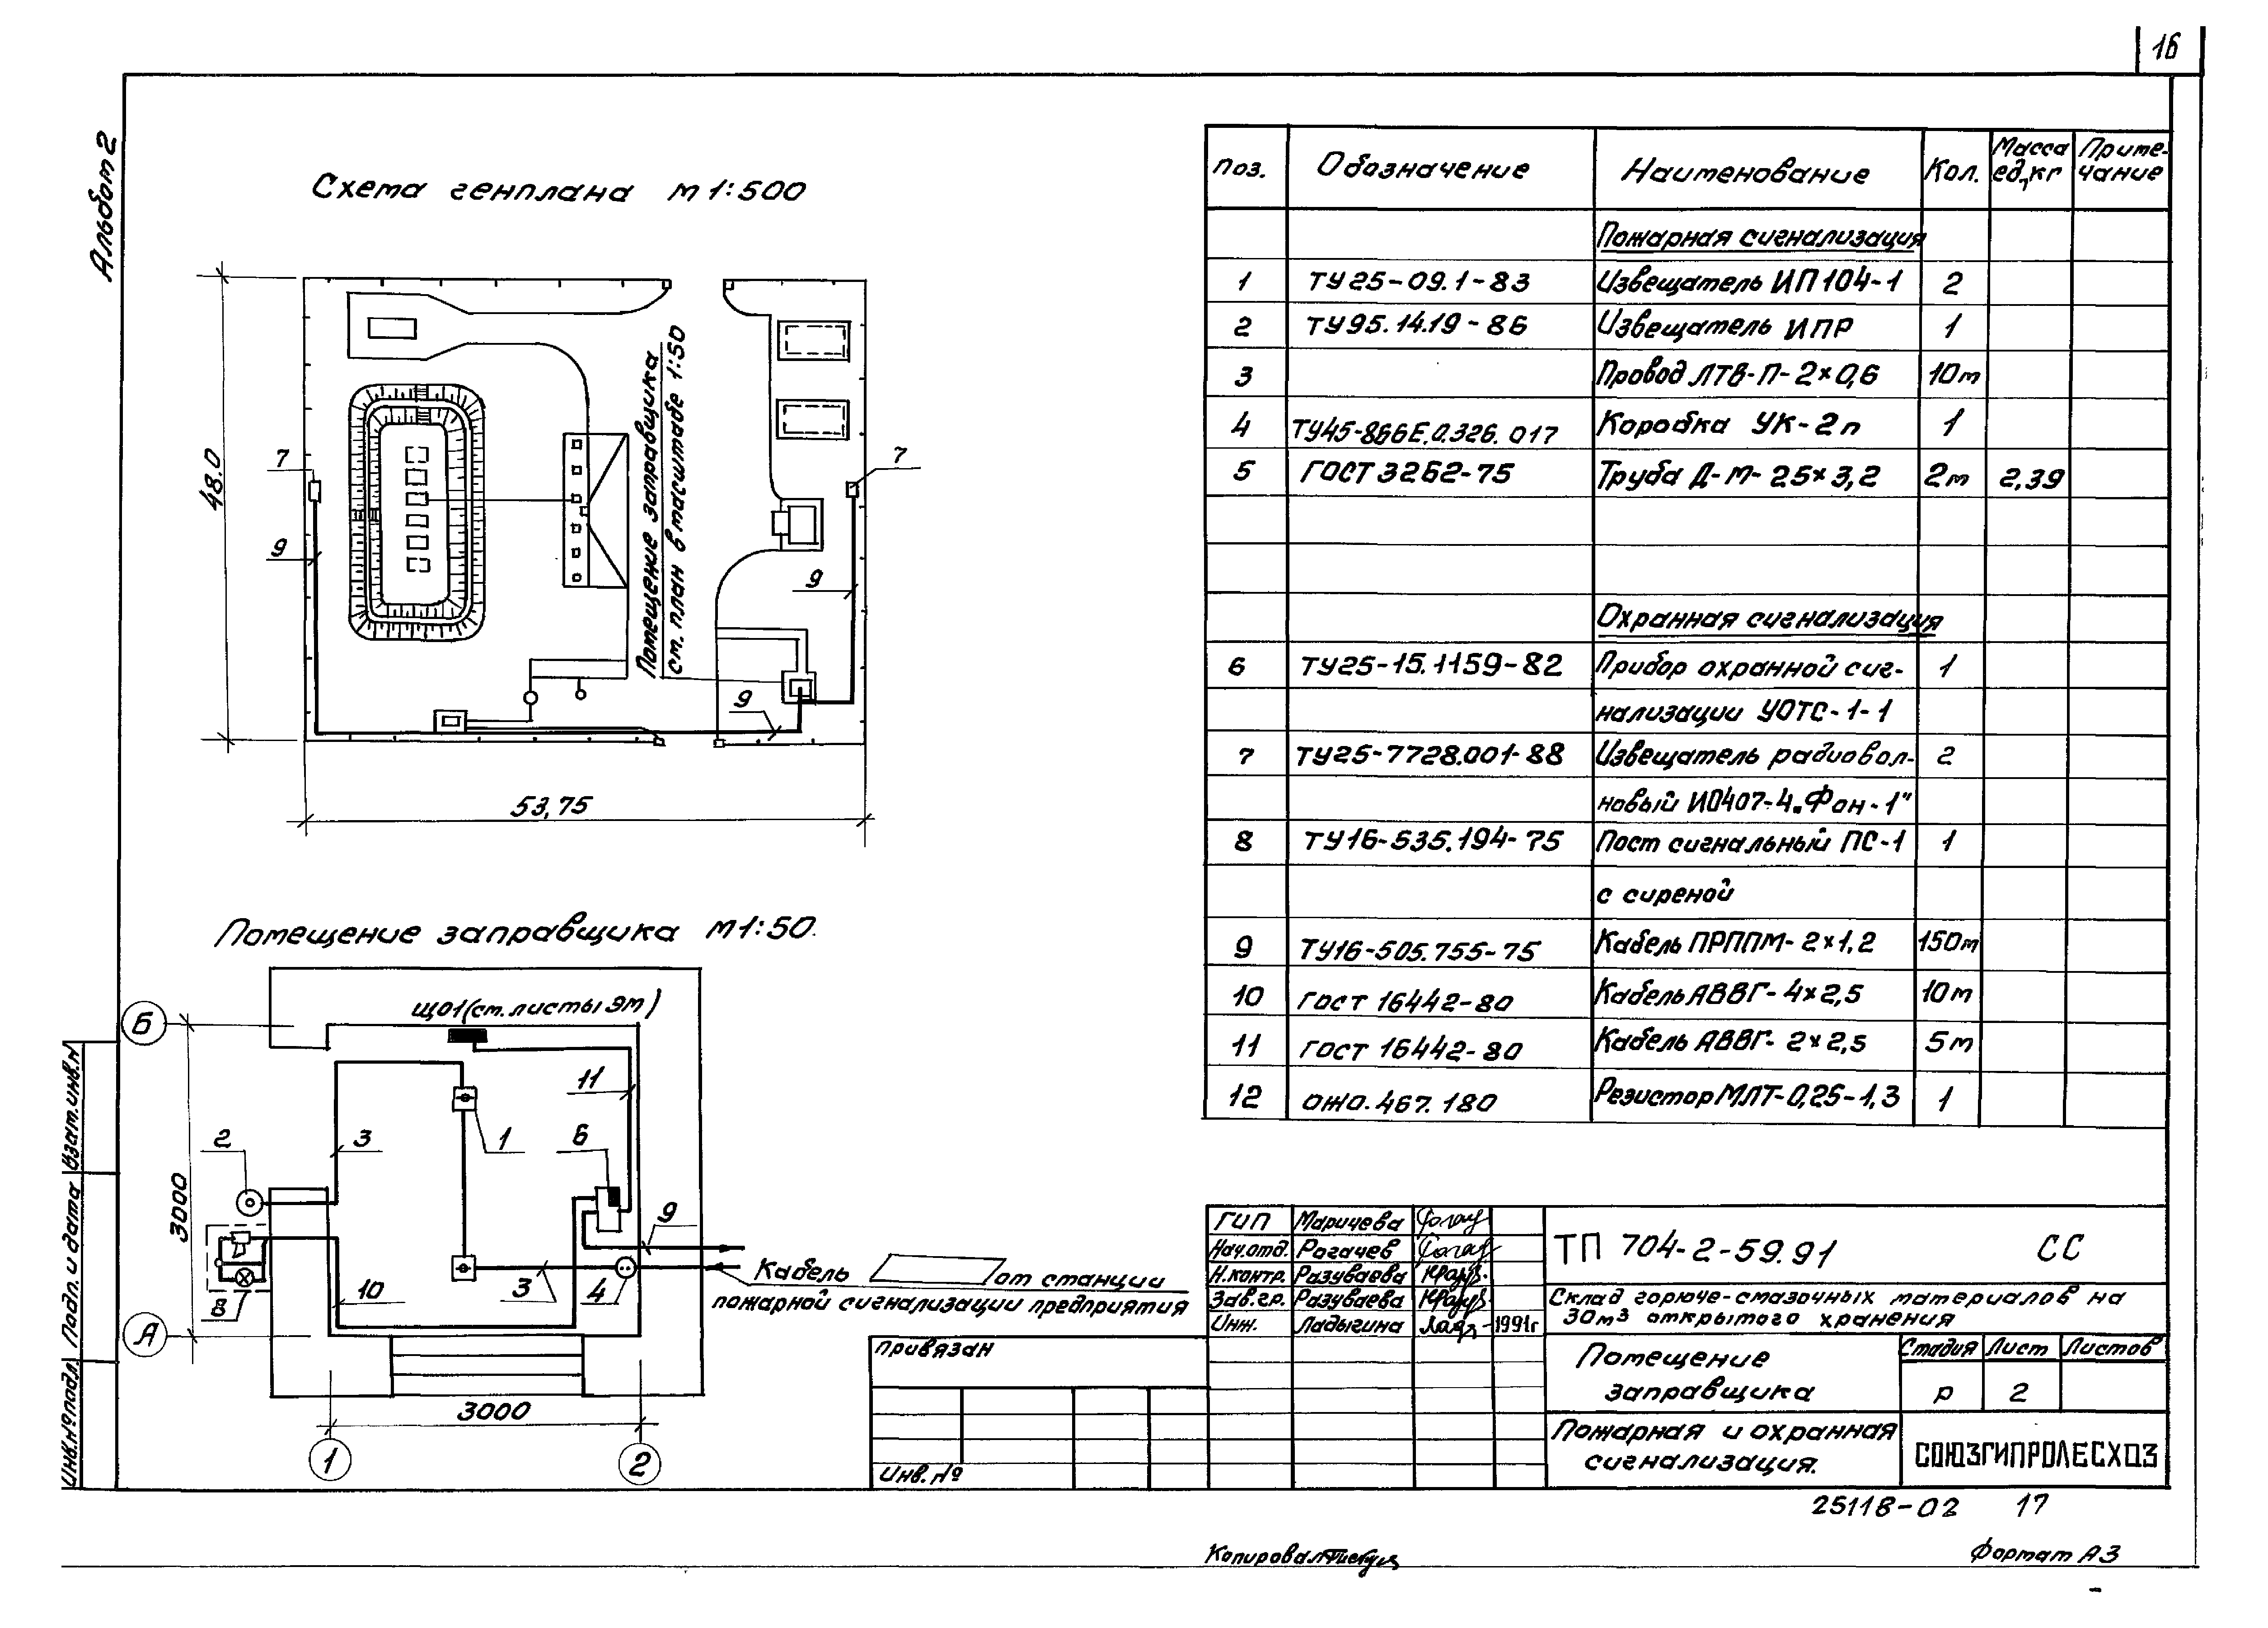 16
Альбом 2
Схема генплана м 1:500
48.0
7
9
7
9
9
Помещение заправщика
см. план в масштабе 1:50
53,75
Помещение заправщика м 1:50.
ЩО1 (см. листы ЭМ)
Б
А
3000
2
3
1
11
6
9
8
10
3
4
Кабель от станции
пожарной сигнализации предприятия
3000
1
2
Поз. Обозначение Наименование Кол. Масса ед,кг Приме-чание
Пожарная сигнализация
1 ТУ25-09.1-83 Извещатель ИП104-1 2
2 ТУ95.14.19-86 Извещатель ИПР 1
3 Провод ЛТВ-П-2×0,6 10м
4 ТУ45-866Е.0.326.017 Коробка УК-2п 1
5 ГОСТ 3262-75 Труба Д-М-25×3,2 2м 2,39
Охранная сигнализация
6 ТУ25-15.1159-82 Прибор охранной сиг- 1
нализации УОТС-1-1
7 ТУ25-7728.001-88 Извещатель радиовол- 2
новый ИО407-4„Фон-1"
8 ТУ16-535.194-75 Пост сигнальный ПС-1 1
с сиреной
9 ТУ16-505.755-75 Кабель ПРППМ-2×1,2 150м
10 ГОСТ 16442-80 Кабель АВВГ-4×2,5 10м
11 ГОСТ 16442-80 Кабель АВВГ-2×2,5 5м
12 ОЖО.467.180 Резистор МЛТ-0,25-1,3 1
ГИП Маричева
Нач.отд. Рогачев
Н.контр. Разуваева
Зав.гр. Разуваева
Инж. Ладыгина 1991г
ТП 704-2-59.91 СС
Склад горюче-смазочных материалов на
30м³ открытого хранения
Помещение
заправщика
Стадия Лист Листов
Р 2
Пожарная и охранная
сигнализация.
СОЮЗГИПРОЛЕСХОЗ
Привязан
Инв. №
Инв.№подл. Подп. и дата Взам.инв.№
25118-02 17
Копировал
Формат А3